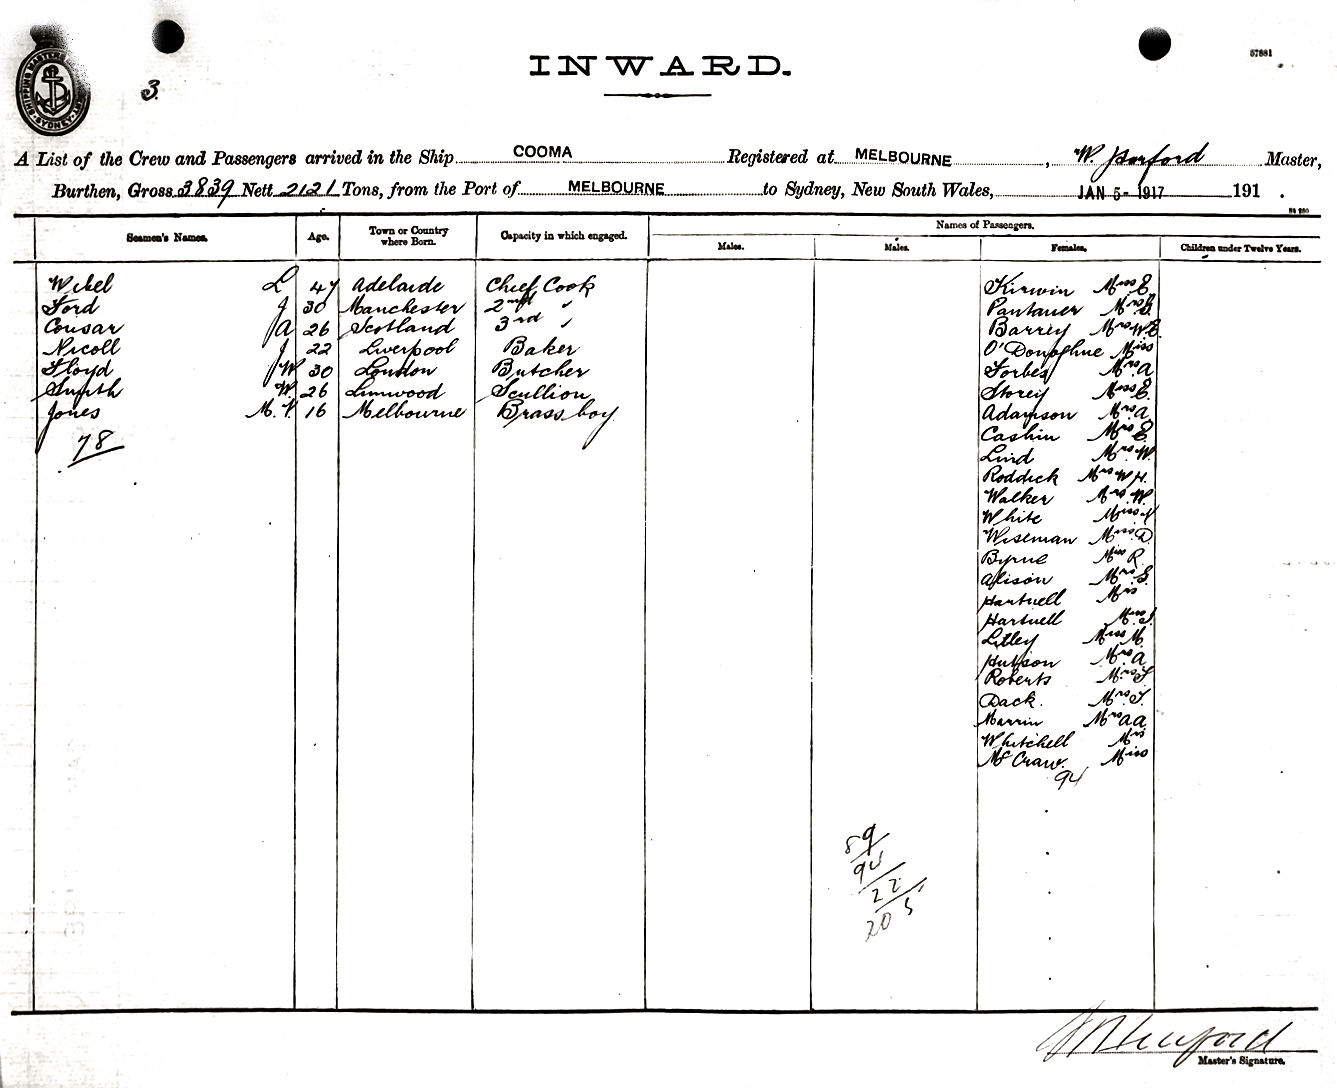 57881
INWARD.
SHIPPING MASTERS SYDNEY
3.
A List of the Crew and Passengers arrived in the Ship COOMA Registered at MELBOURNE, W Master,
Burthen, Gross 3839 Nett 2121 Tons, from the Port of MELBOURNE to Sydney, New South Wales, JAN 5- 1917 191 .
Seamen's Names. Age. Town or Country where Born. Capacity in which engaged. Names of Passengers.
Males. Males. Females. Children under Twelve Years.
L 47 Adelaide Chief Cook Kirwin Miss E
Ford J 30 Manchester 2nd " Pantauer Mrs G
Cousar A 26 Scotland 3rd " Barrey Mrs W.E.
Nicoll J 22 Liverpool Baker O'Donoghue Miss
Floyd J W 30 London Butcher Forbes Mrs A
Smyth W. 26 Linwood Scullion Storey Miss E.
Jones M. V 16 Melbourne Brass boy Adamson Mrs A
78 Cashin Mrs E
Lind Mrs W.
Roddick Mrs W H.
Walker Mrs W.
White Miss
Wiseman Miss D.
Byrne Miss R.
Alison Mrs G.
Hartnell Mrs
Hartnell Miss I.
Litley Miss M.
Hutson Mrs A
Roberts Mrs F
Dack. Mrs T.
Marrin Mrs A A
Whitchell Mrs
McCraw. Miss
94
89
94
22
205
Master's Signature.